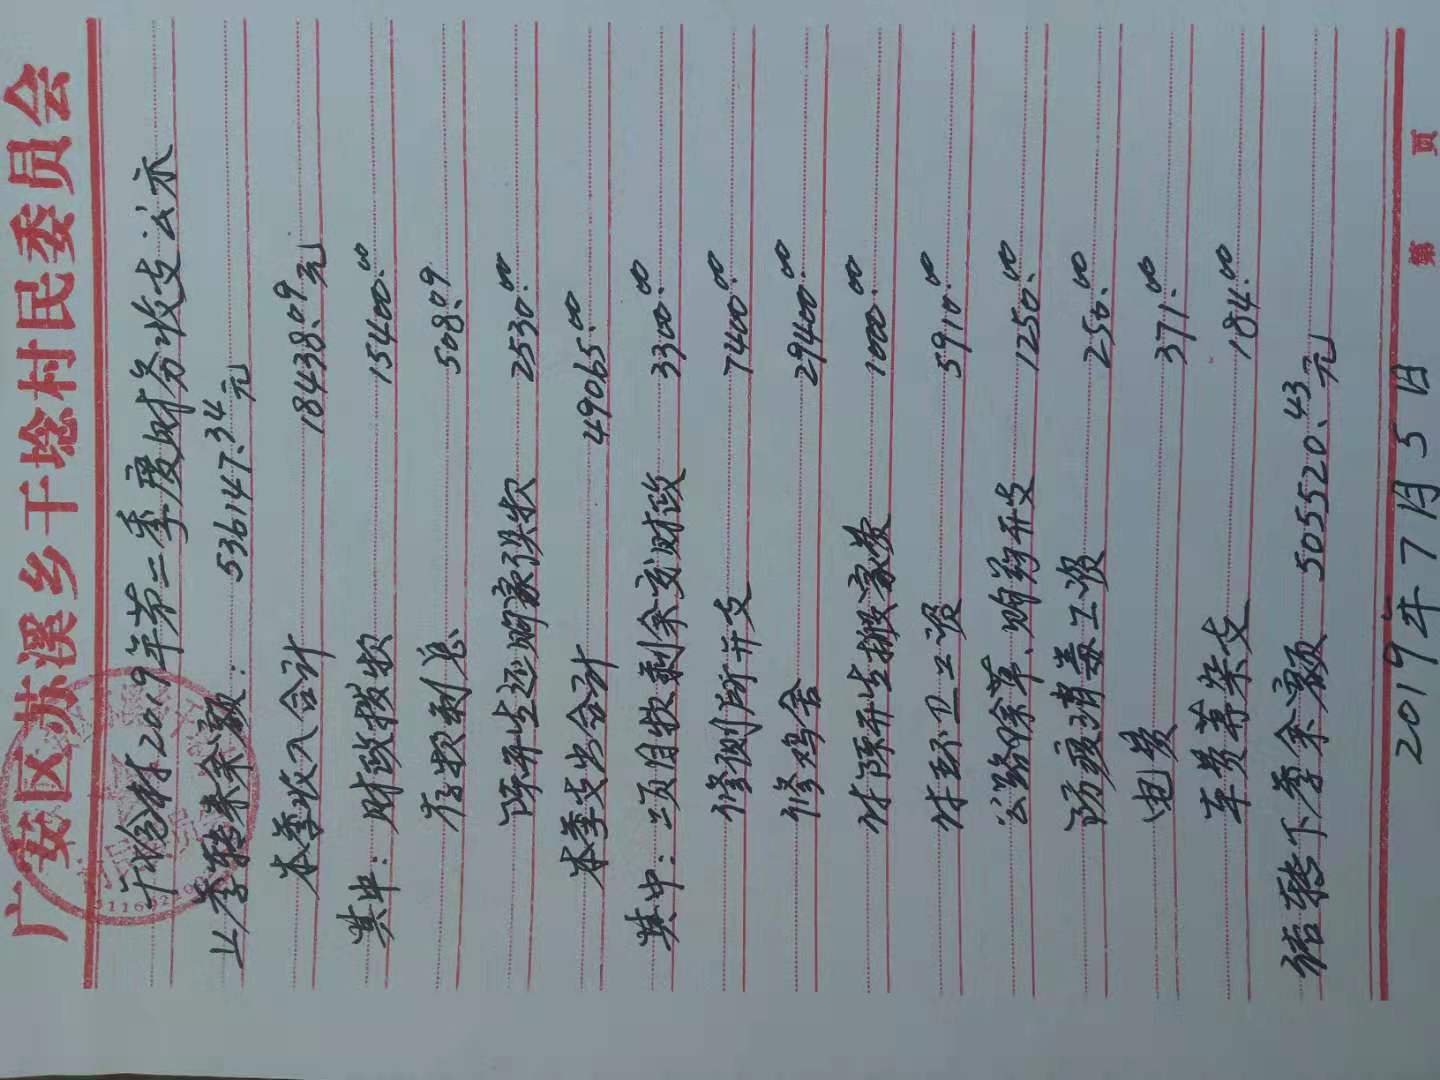 广安区苏溪乡干埝村民委员会
干埝村2019年第二季度财务收支公示
上季转来余额：536147.34元
本季收入合计 18438.09元
其中：财政拨款 15400.00
存款利息 508.09
陈开芳还 2530.00
本季支出合计 49065.00
其中：项目款剩余交财政 3300.00
修厕所开支 7400.00
修鸡舍 29400.00
付陈开芳搬家费 1000.00
付环卫工资 5910.00
公路除草、购药开支 1250.00
防疫消毒工资 250.00
电费 371.00
车费等杂支 184.00
结转下季余额 505520.43元
2019年7月5日
第 页